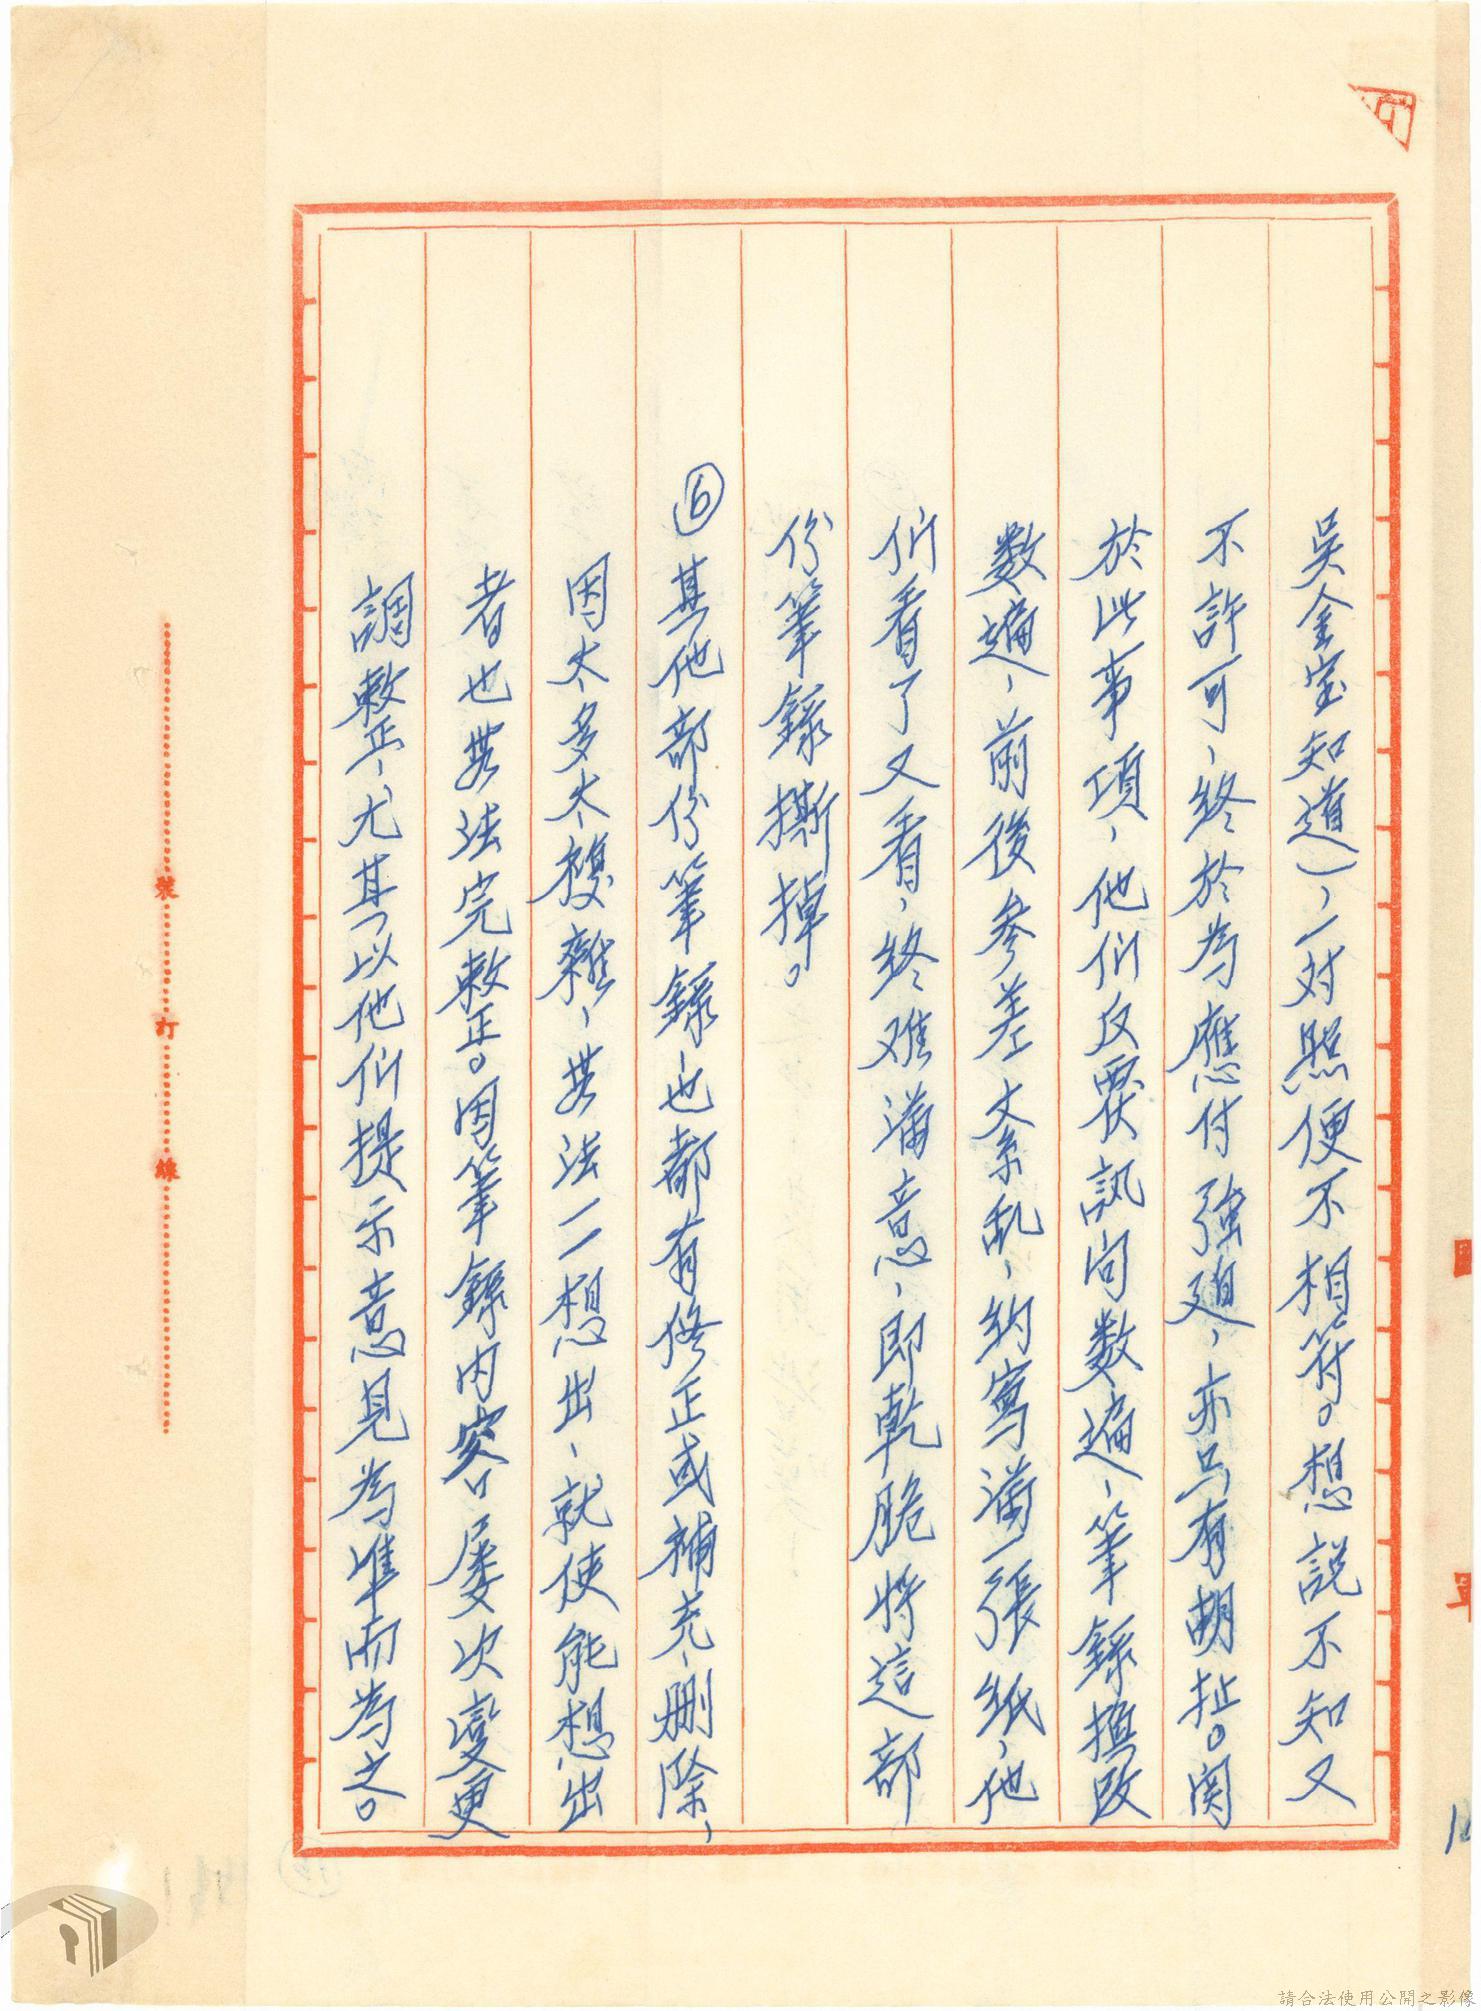 吳金宝知道)，一对照便不相符。想說不知又
不許可，終於為應付強迫，亦只有胡扯。関
於此事項，他们反覆訊问数遍，筆錄撰改
数遍，前後參差文系乱，约寫滿一張纸，他
们看了又看，終难滿意，即乾脆将這部
份筆錄撕掉。
⑥其他部份筆錄也都有修正或補充、刪除，
因太多太複雜，無法一一想出，就使能想出
者也無法完整。因筆錄内容屡次變更
調整，尤其以他们提示意見為準而為之。
裝訂線
請合法使用公開之影像